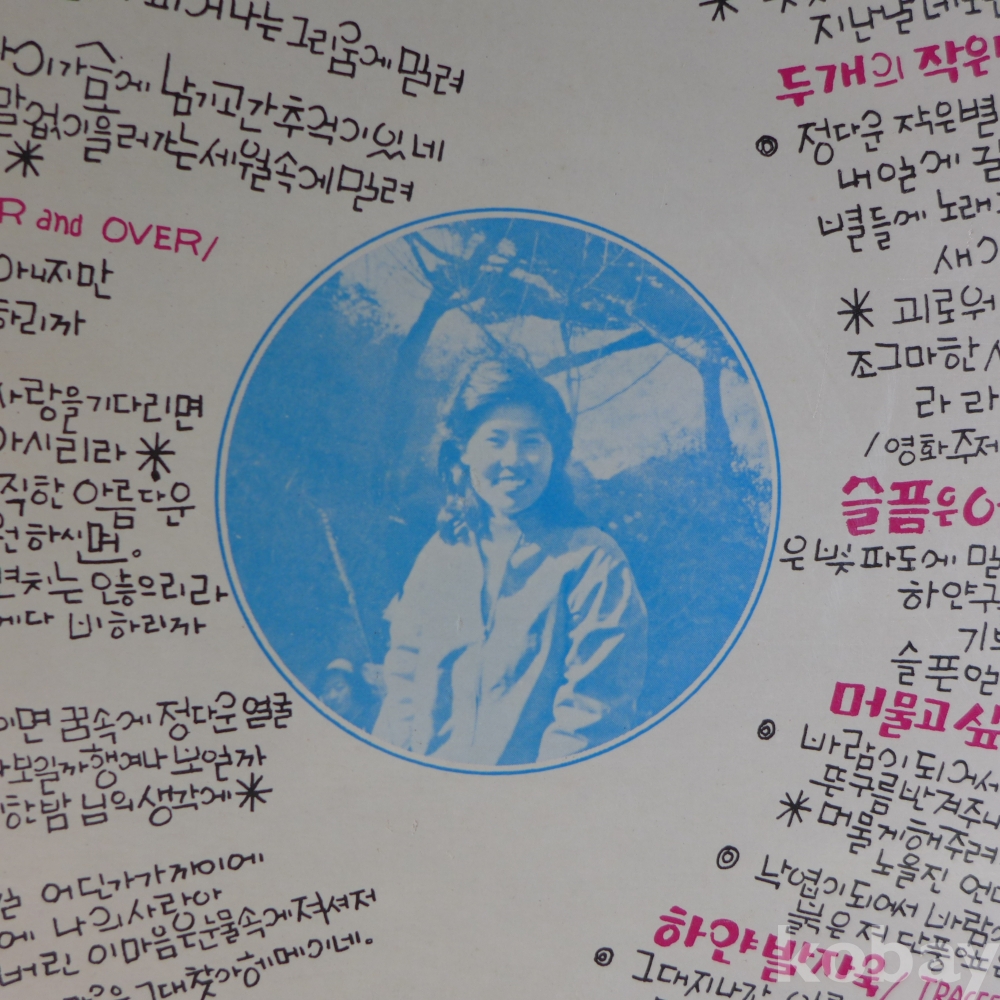 피어나는 그리움에 밀려
이 가슴에 남기고 간 추억이 있네
말없이 흘러가는 세월 속에 밀려
✳
R and OVER/
아니지만
하리까
사랑을 기다리면
아시리라 ✳
직한 아름다운
원하시면。
변치는 안흐리라
에다 비하리까
이면 꿈속에 정다운 얼굴
보일까 행여나 보일까
한밤 님의 생각에 ✳
어딘가 가까이에
에 나의 사랑아
버린 이 마음은 눈물속에 젖셔저
그대 찾아 헤메이네.
✳
지난날
두개의 작은
◎ 정다운 작은 별
내 앞에
별들에 노래
새
✳ 괴로워
조그마한
라 라
/영화주제
슬픔은
은빛 파도에
하얀
기
슬픈
머물고 싶
◎ 바람이 되어서
뚜구름 반겨주
✳ 머물게 해주려
노을진 언
◎ 낙엽이 되어서 바람
붉은 저 단풍잎
하얀 발자욱/
◎ 그대 지나간
kobay